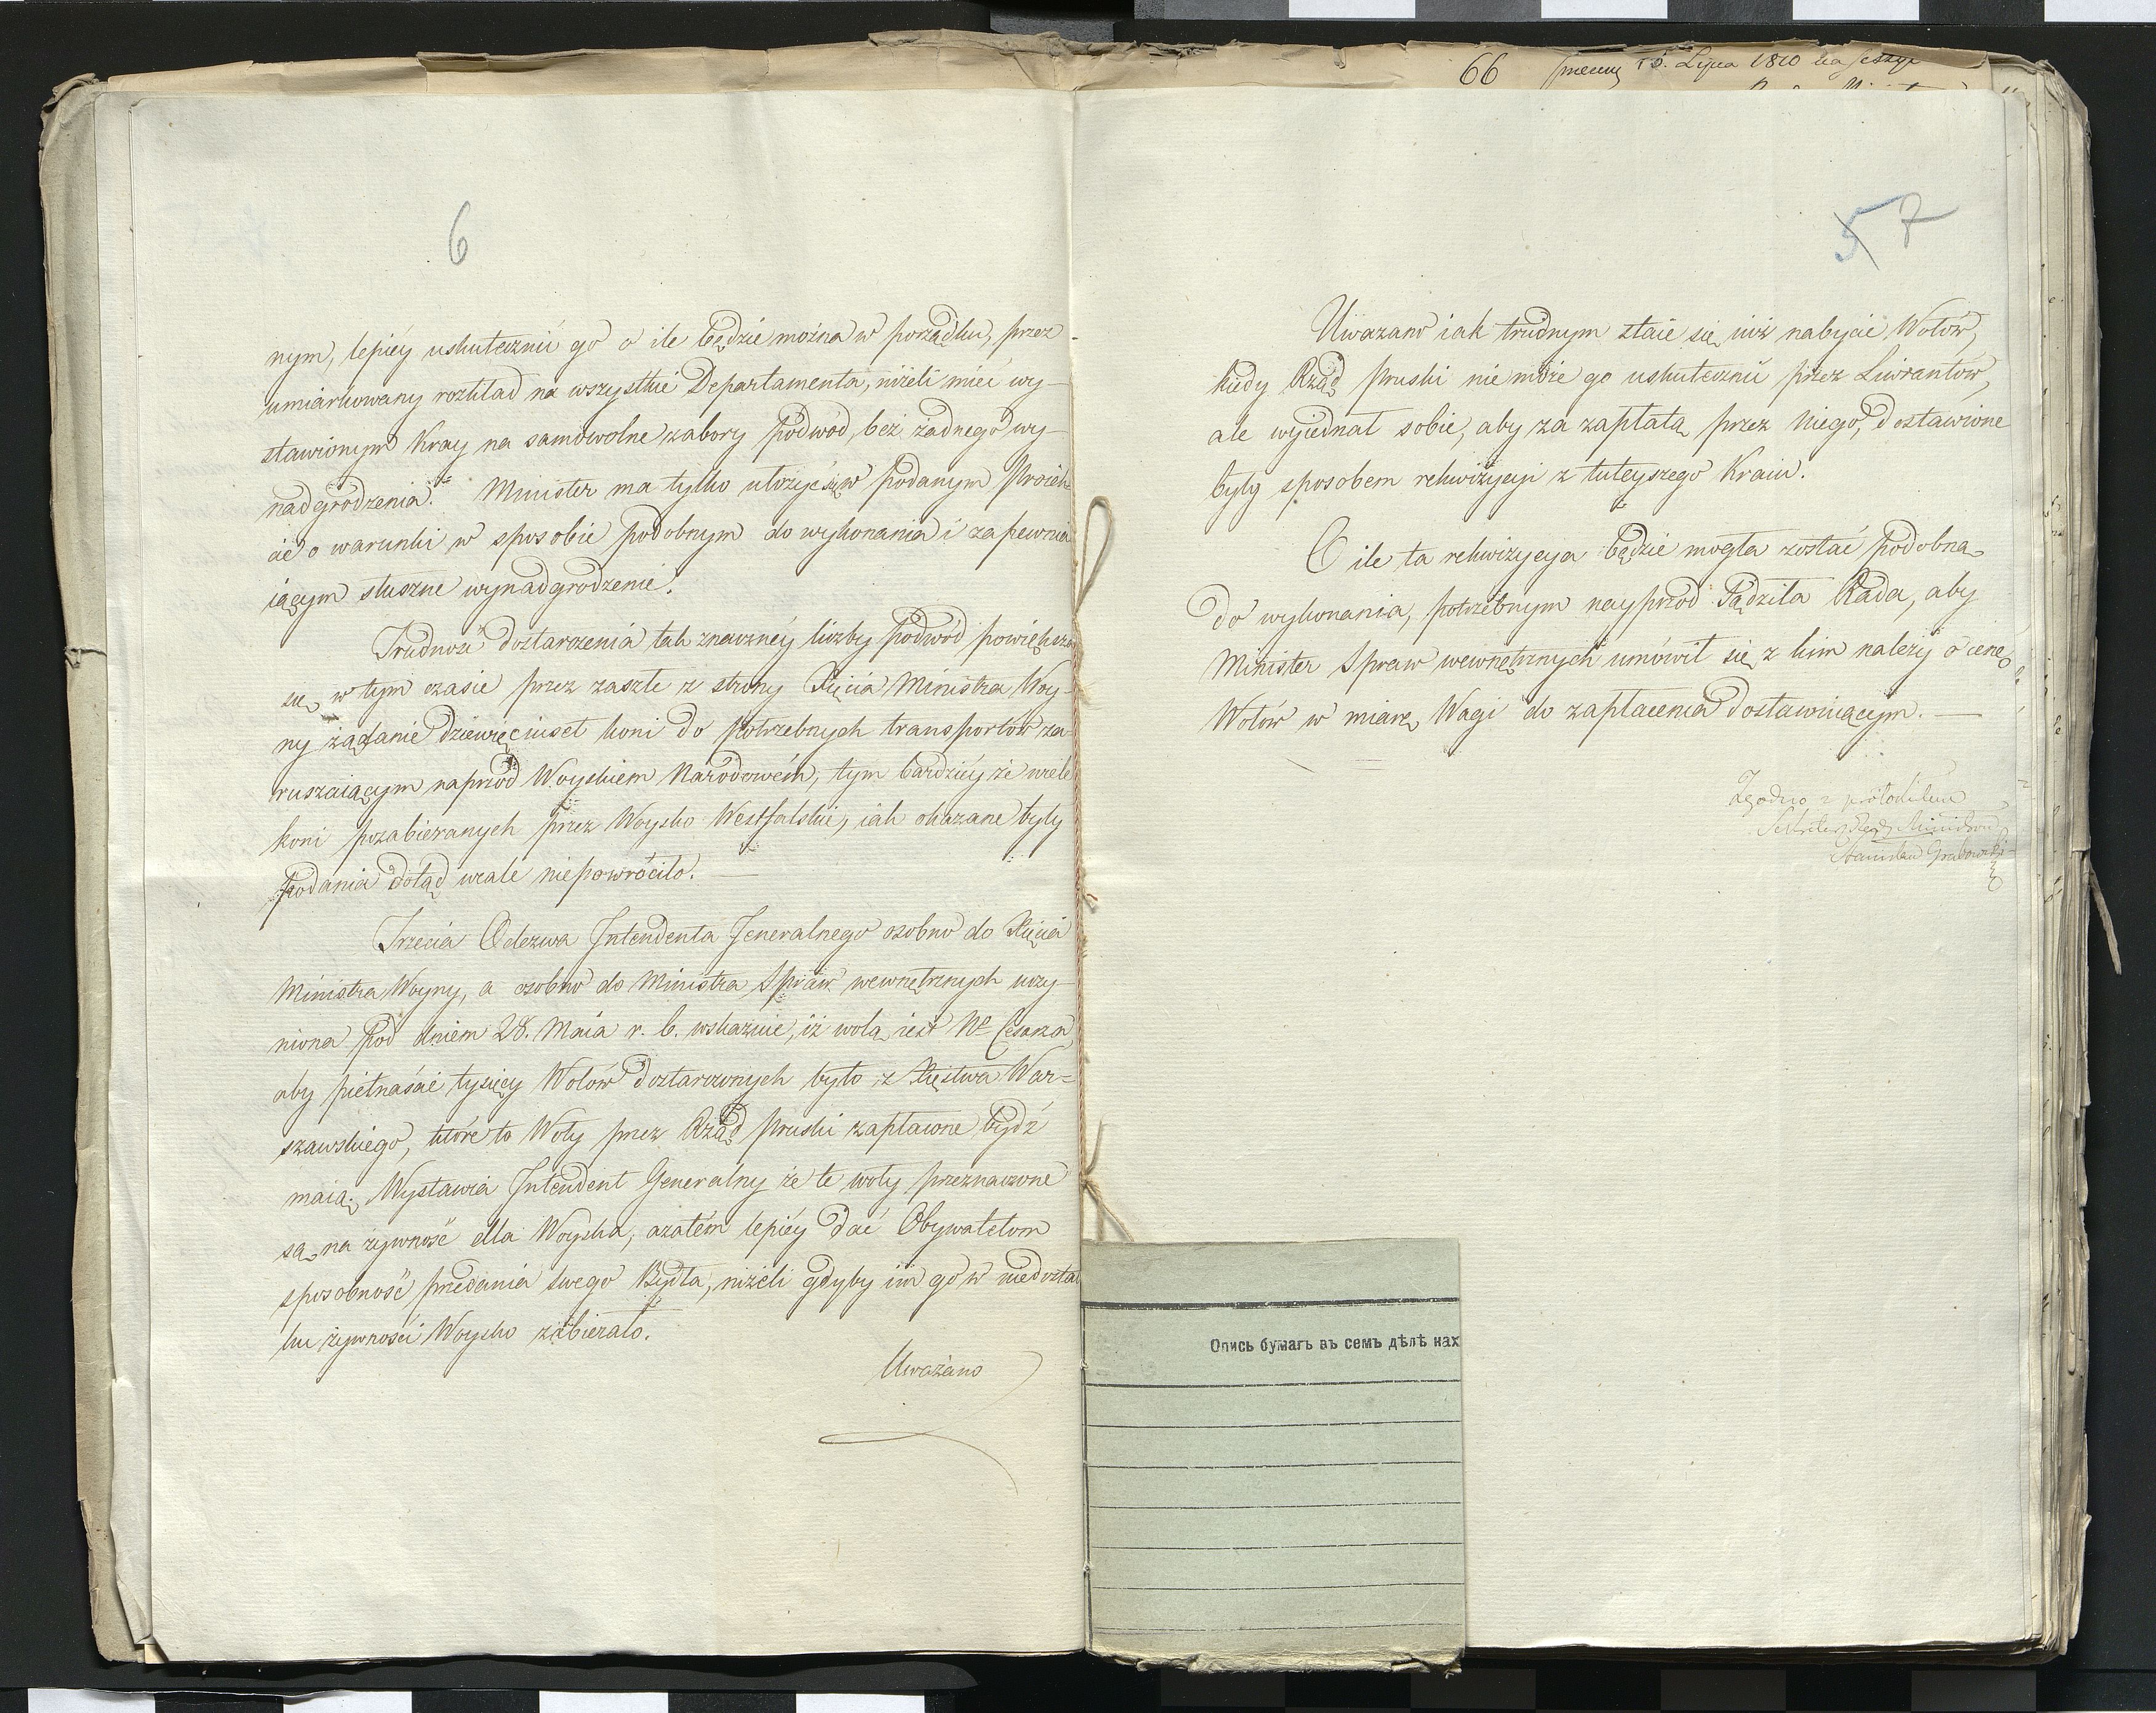 66 15. Lipca 1810 na Sessyi
6
nym, lepiéy uskutecznić go o ile będzie można w porządku, przez
umiarkowany rozkład na wszystkie Departamenta, niżeli mieć wy-
stawionym Kray na samowolne zabory podwód, bez żadnego wy-
nadgrodzenia. Minister ma tylko ułożyć się w podanym Proiek-
cie o warunki w sposobie podobnym do wykonania i zapewnia-
iącym słuszne wynadgrodzenie.
Trudność dostarczenia tak znacznéy liczby podwód powiększa
się w tym czasie przez zaszłe z strony Xięcia Ministra Woy-
ny żądanie dziewięciuset koni do potrzebnych transportów za
ruszaiącym naprzód Woyskiem Narodowém, tym bardziéy że wiele
koni pozabieranych przez Woysko Westfalskie, iak okazane były
podania dotąd wcale niepowróciło. —
Trzecia Odezwa Intendenta Jeneralnego osobno do Xięcia
Ministra Woyny, a osobno do Ministra Spraw wewnętrznych uczy-
niona pod dniem 28. Maia r. b. wskazuie, iż wolą iest Ne Cesarza
aby piętnaście tysięcy Wołów dostarczonych było z Xięstwa War=
szawskiego, które to Woły przez Rząd Pruski zapłacone bydź
maią. Wystawia Intendent Generalny że te woły przeznaczone
są na żywność dla Woyska, a zatém lepiéy dać Obywatelom
sposobność przedania swego Bydła, niżeli gdyby im go w niedostat
ku żywności Woysko zabierało.
Uważano
5 7
Uważano iak trudnym staie się iuż nabycie Wołów,
kiedy Rząd Pruski nie może go uskutecznić przez Liwrantów,
ale wyiednał sobie, aby za zapłatą przez niego, dostawione
były sposobem rekwizycyi z tuteyszego Kraiu.
O ile ta rekwizycya będzie mogła zostać podobną
do wykonania, potrzebnym nayprzód sądziła Rada, aby
Minister Spraw wewnętrznych umówił się z kim należy o cenę
Wołów w miarę Wagi do zapłacenia dostawuiącym. —
Zgodno z protokułem
Sekretarz Rady Ministrów
Stanisław Grabowski
Опись бумагъ въ семъ дѣлѣ нах